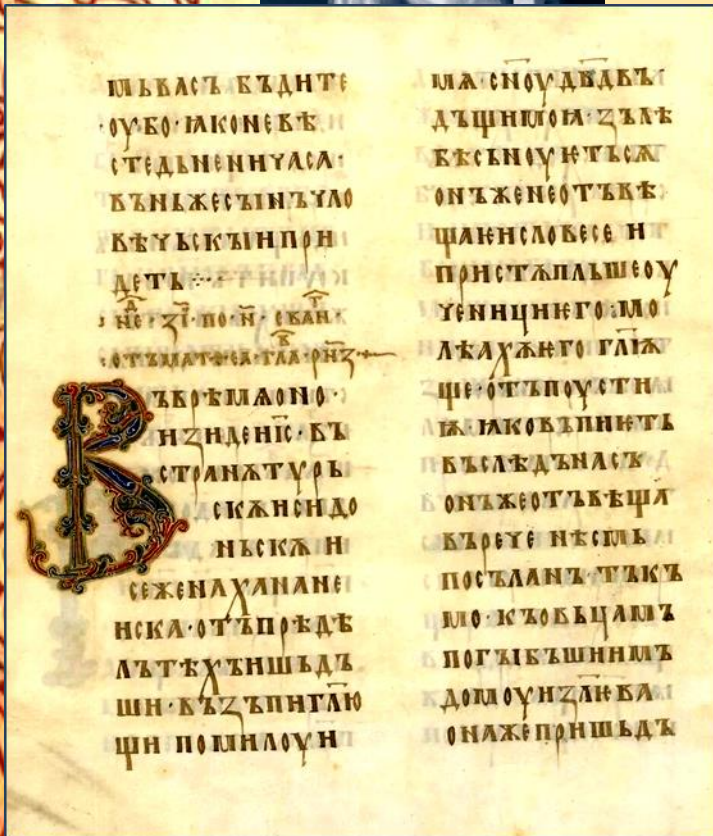 мьвасъ бъдите
·оубо·ꙗконевѣ
стедьнениѵаса·
въньжесꙑнъѵло
вѣѵьскꙑипри
деть
не·зі·по·н·еван·
отъматѳеа·гла·рнз
Въврѣмѧоно·
изидеис·въ
странѫтѵръ
скѫисидо
ньскѫ и
сеженахананеи
нска·отъпрѣдѣ
лътѣхъишьдъ
ши·възъпиглю
щи помилоуи
мѧ·сноудвдвъ·
дъщимоꙗ·зълѣ
бѣсьноуѥтьсѧ
онъженеотъвѣ
щаѥисловесе и
пристѫпльшеоу
ѵеницииѥго:мо
лѣахѫѥго глѭ
ще·отъпоусти
ѭ·ꙗковъпиѥть
въслѣдънасъ
онъжеотъвѣща
въреѵе нѣсмь
посъланъ·тъкъ
мо·къовьцамъ
погꙑбъшиимъ
домоуизлѥва
онажепришьдъ